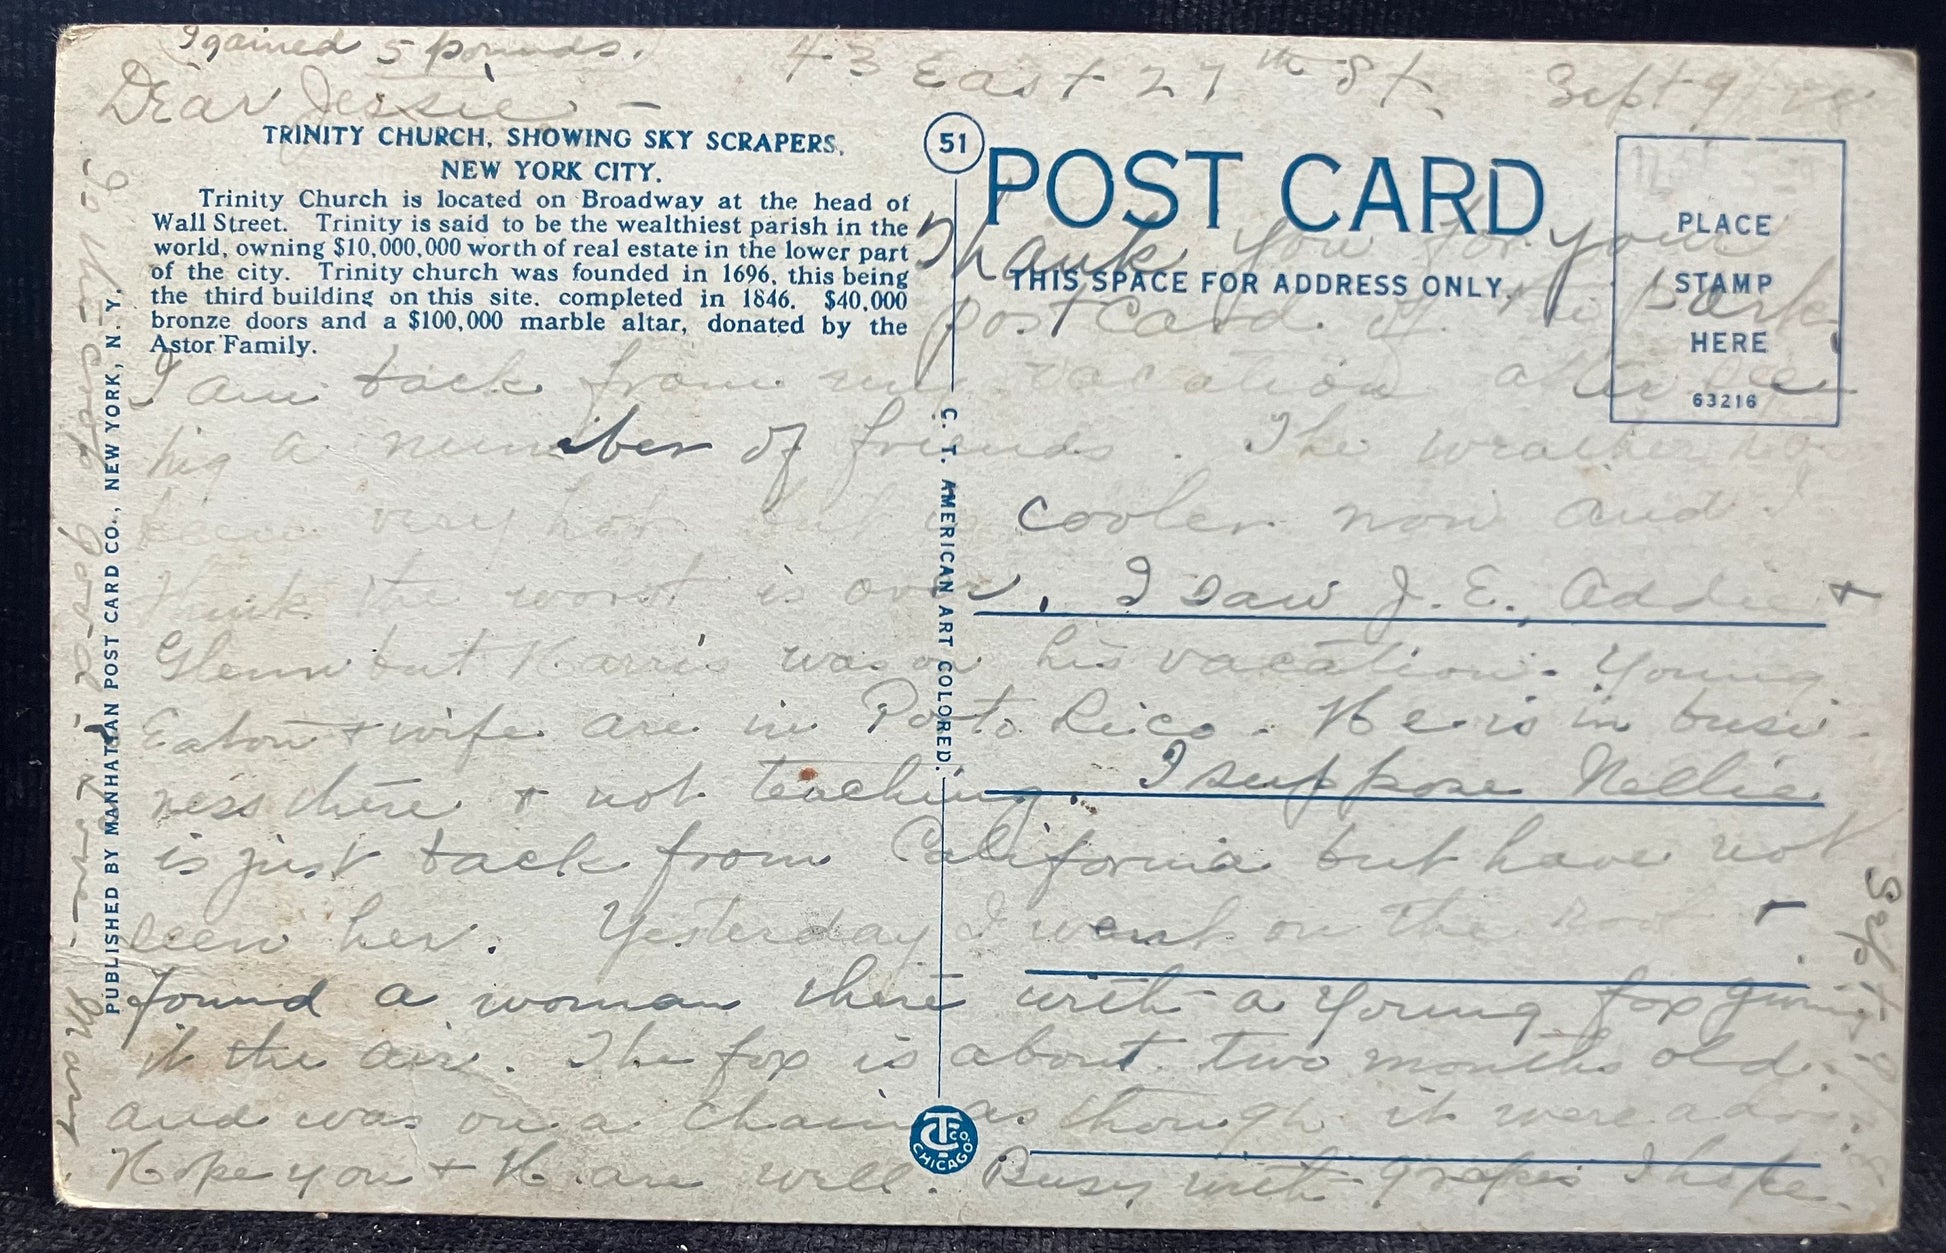 I gained 5 pounds.
43 East 27th St. Sept 9
Dear Jessie -
TRINITY CHURCH, SHOWING SKY SCRAPERS,
NEW YORK CITY.
Trinity Church is located on Broadway at the head of
Wall Street. Trinity is said to be the wealthiest parish in the
world, owning $10,000,000 worth of real estate in the lower part
of the city. Trinity church was founded in 1696, this being
the third building on this site. completed in 1846. $40,000
bronze doors and a $100,000 marble altar, donated by the
Astor Family.
51
POST CARD
THIS SPACE FOR ADDRESS ONLY.
PLACE
STAMP
HERE
63216
Thank you for your
post card. of the park
I am back from my vacation after see
ing a number of friends. The weather has
been very hot but is cooler now and I
think the worst is over. I saw J. E., Addie +
Glenn but Harris was on his vacation. Young
Eaton + wife are in Porto Rico. He is in busi-
ness there + not teaching. I suppose Nellie
is just back from California but have not
seen her. Yesterday I went on the roof +
found a woman there with a young fox giving
it the air. The fox is about two months old
and was on a chain as though it were a dog.
Hope you + H. are well. Busy with grapes I hope.
PUBLISHED BY MANHATTAN POST CARD CO., NEW YORK, N. Y.
C. T. AMERICAN ART COLORED.
C.T. CO. CHICAGO
Mary
Sept 9/